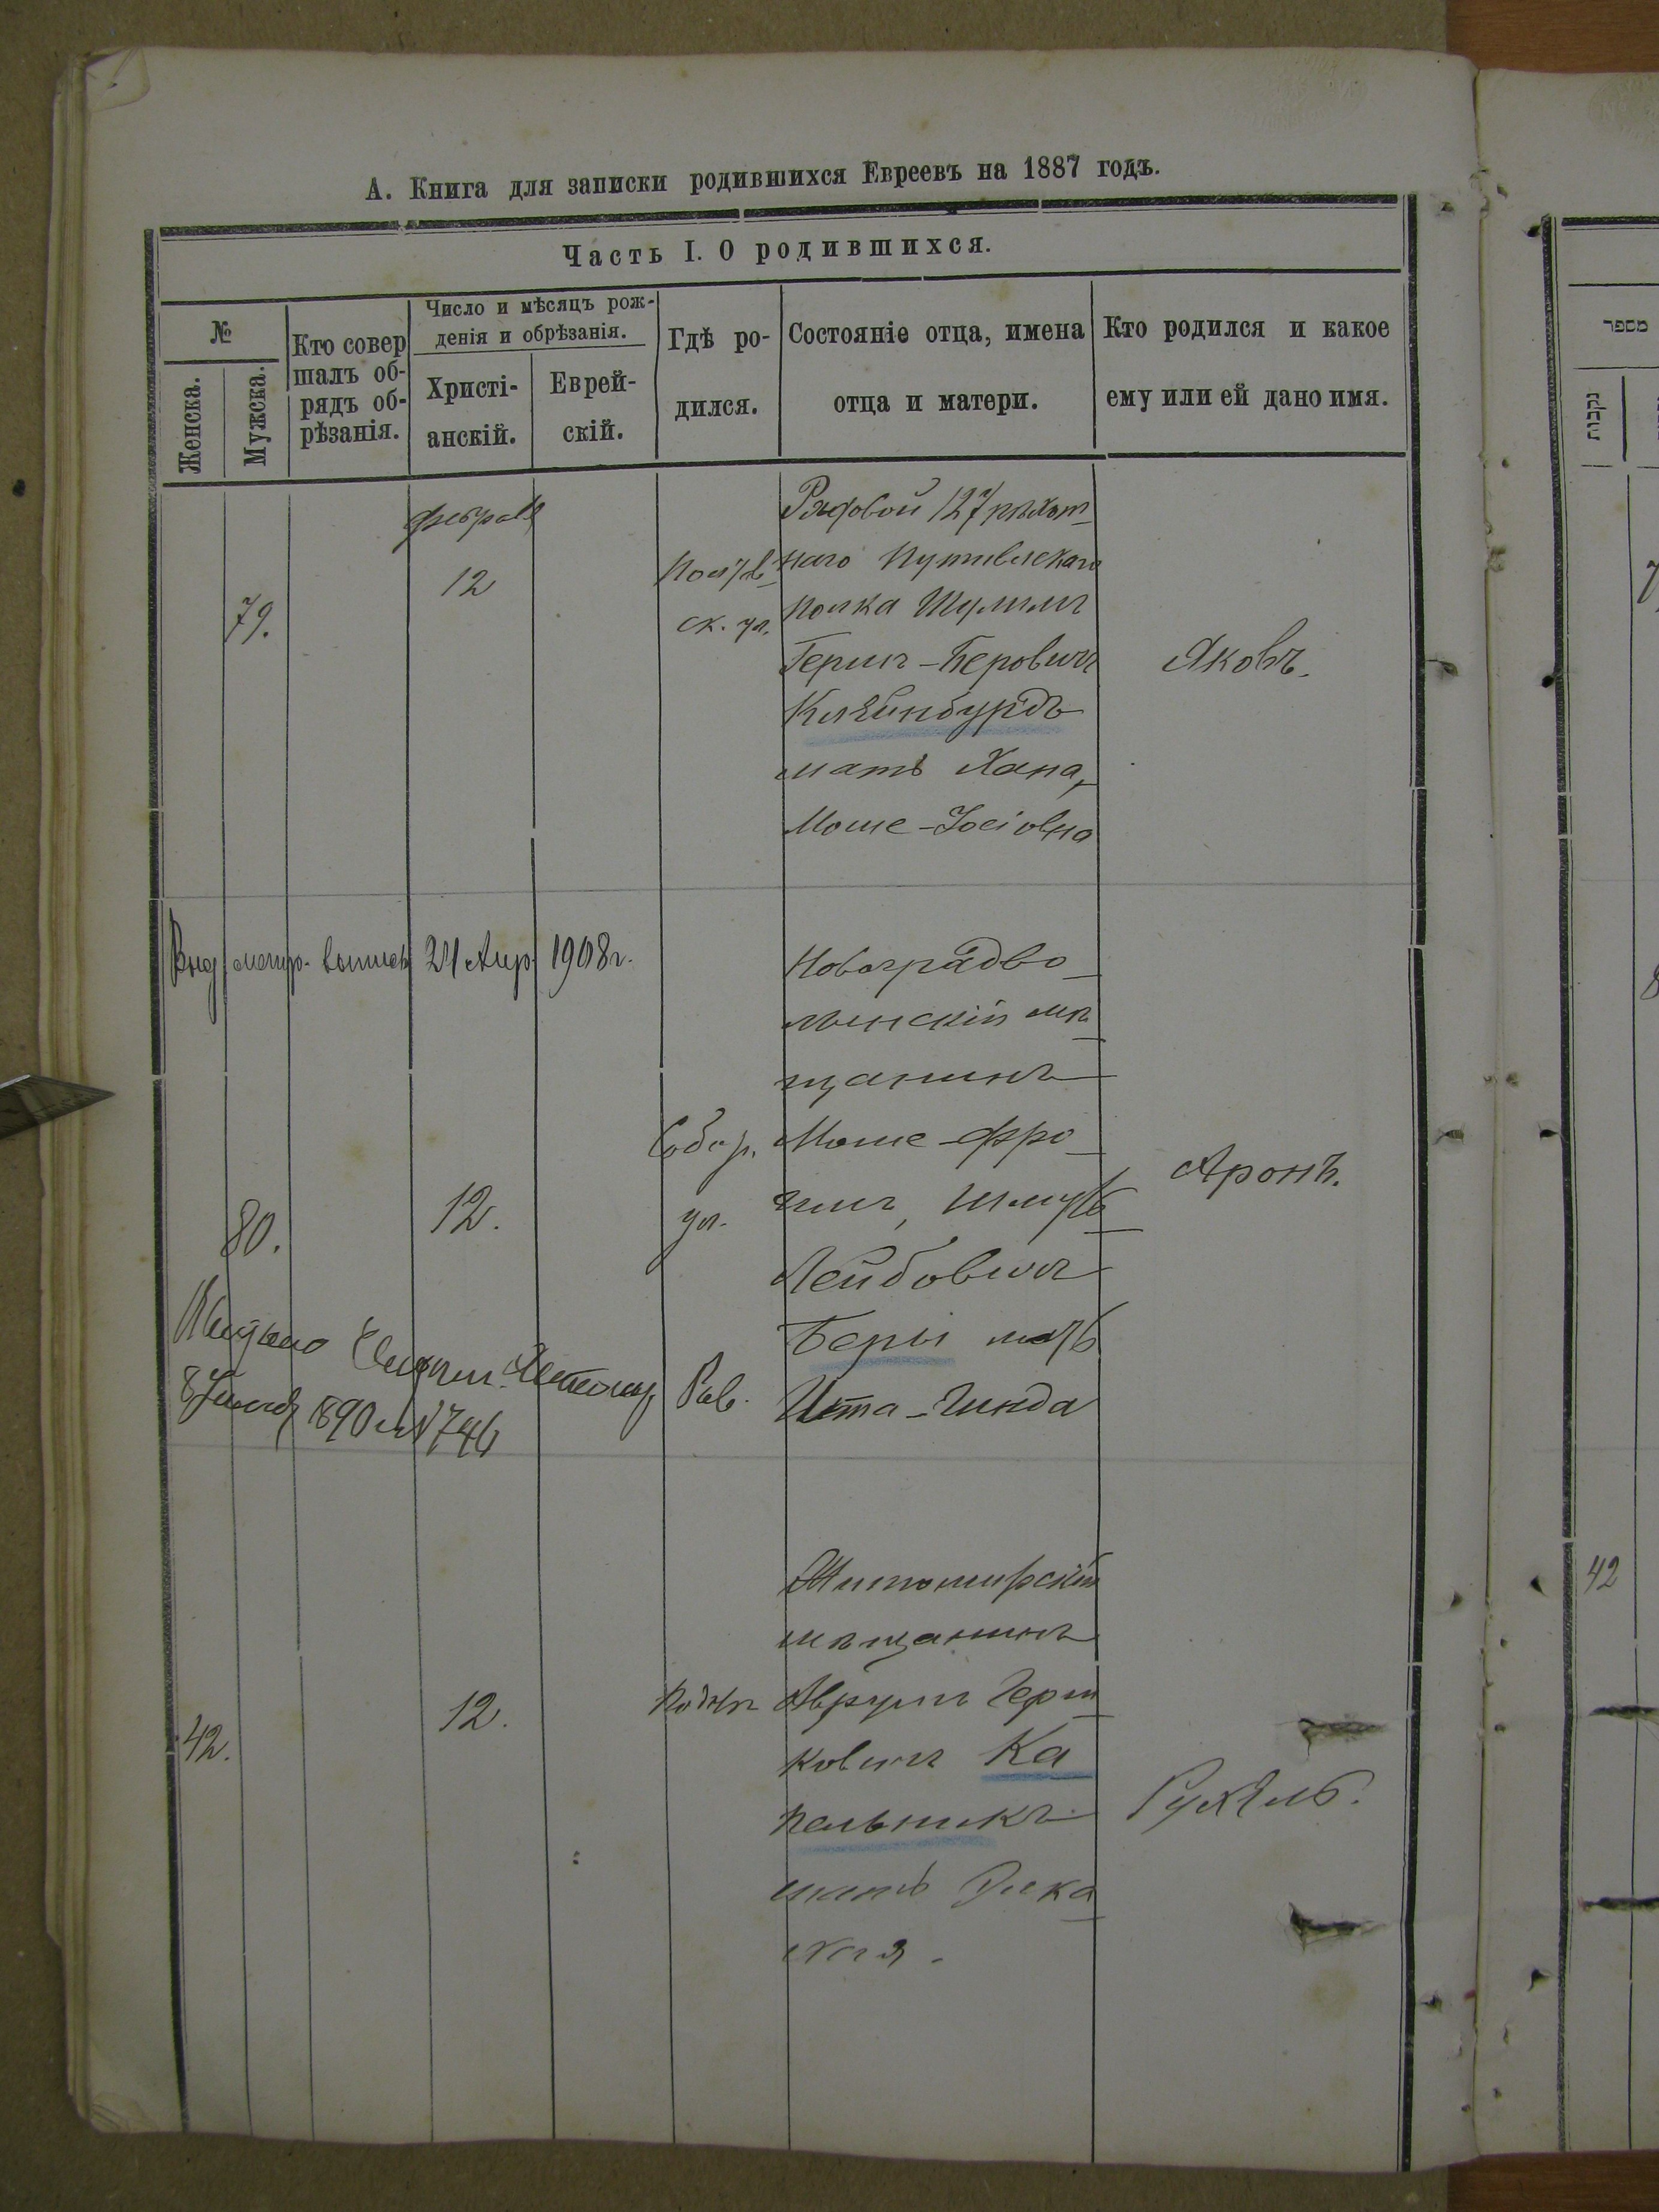 А. Книга для записки родившихся Евреевъ на 1887 годъ.
Часть I. О родившихся.
№
Женска.
Мужска.
Кто совер
шалъ об-
рядъ об-
рѣзанія.
Число и мѣсяцъ рож-
денія и обрѣзанія.
Христі-
анскій.
Еврей-
скій.
Гдѣ ро-
дился.
Состояніе отца, имена
отца и матери.
Кто родился и какое
ему или ей дано имя.
79.
Февраля
12
ск. ул.
Рядовой 127 пѣхот-
наго Путивлскаго
полка Шулимъ
Гершъ-Беровичъ
Клейнбурдъ
мать Хана,
Моше-Іосіовна
Яковъ.
Выд метр. выпись 24 Апр 1908 г.
80.
12.
Собор.
ул.
Новоградво-
лынскій мѣ-
щанинъ
Моше-Фро-
имъ, Шмуль-
Лейбовичъ
Беры мать
Ита-Гинда
Аронъ.
8 890 № 746
Рав.
42.
12.
Житомирскій
мѣщанинъ
Аврумъ Герш-
ковичъ Ка
пельникъ
мать
Рухель.
מספר
נקבות
42